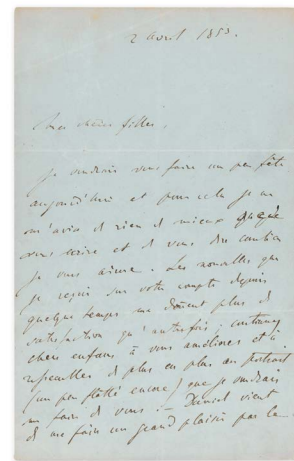 2 avril 1853.
Mes chères filles,
Je voudrais vous faire un peu fête
aujourd'hui et pour cela je ne
m'avise de rien de mieux que de
vous écrire et de vous dire combien
je vous aime. Les nouvelles que
je reçois sur votre compte depuis
quelque temps me donnent plus de
satisfaction qu'autrefois; continuez
chers enfans à vous améliorer et à
ressembler de plus en plus au portrait
(un peu flatté encore) que je voudrais
me faire de vous. — Daniel vient
de me faire un grand plaisir par la